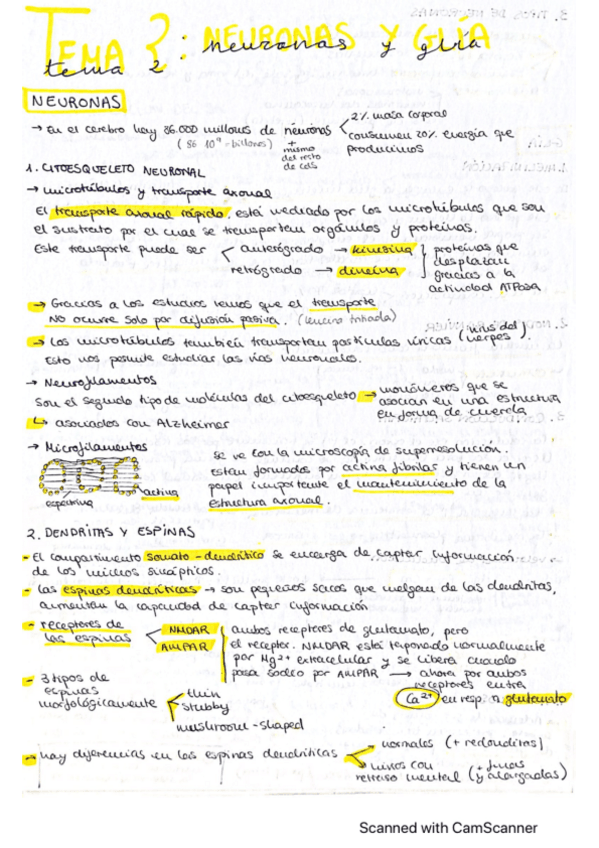 TEMA 2: NEURONAS Y GLIA
tema 2: neuronas y glía
NEURONAS
→ En el cerebro hay 86.000 millones de neuronas
(86 10⁹ - billones)
+ mismo del resto de cels
2% masa corporal
consumen 20% energía que producimos
1. CITOESQUELETO NEURONAL
→ microtúbulos y transporte axonal
El transporte axonal rápido, está mediado por los microtúbulos que son
el sustrato por el cual se transportan orgánulos y proteínas.
Este transporte puede ser
anterógrado → kinesina
retrógrado → dineína
proteínas que
desplazan
gracias a la
actividad ATPasa
→ Gracias a los estudios vemos que el transporte
NO ocurre solo por difusión pasiva.
→ Los microtúbulos también transportan partículas víricas (virus del herpes).
Esto nos permite estudiar las vías neuronales.
→ Neurofilamentos
Son el segundo tipo de moléculas del citoesqueleto → monómeros que se
asocian en una estructura
en forma de cuerda
↳ asociados con Alzheimer
→ Microfilamentos
actina
espectrina
Se ve con la microscopía de superresolución.
están formados por actina fibrilar y tienen un
papel importante el mantenimiento de la
estructura axonal.
2. DENDRITAS Y ESPINAS
- El compartimento somato-dendrítico se encarga de captar información
de los inputs sinápticos.
- las espinas dendríticas → son pequeños sacos que cuelgan de las dendritas,
aumentan la capacidad de captar información
- receptores de
las espinas
NMDAR
AMPAR
ambos receptores de glutamato, pero
el receptor NMDAR está taponado normalmente
por Mg2+ extracelular y se libera cuando
pasa sodio por AMPAR → ahora por ambos
receptores entra
Ca²⁺ en resp. a glutamato
- 3 tipos de
espinas
morfológicamente
thin
stubby
mushroom-shaped
- hay diferencias en las espinas dendríticas
normales (+ redonditas)
niños con
retraso mental (+ finas y alargadas)
Scanned with CamScanner